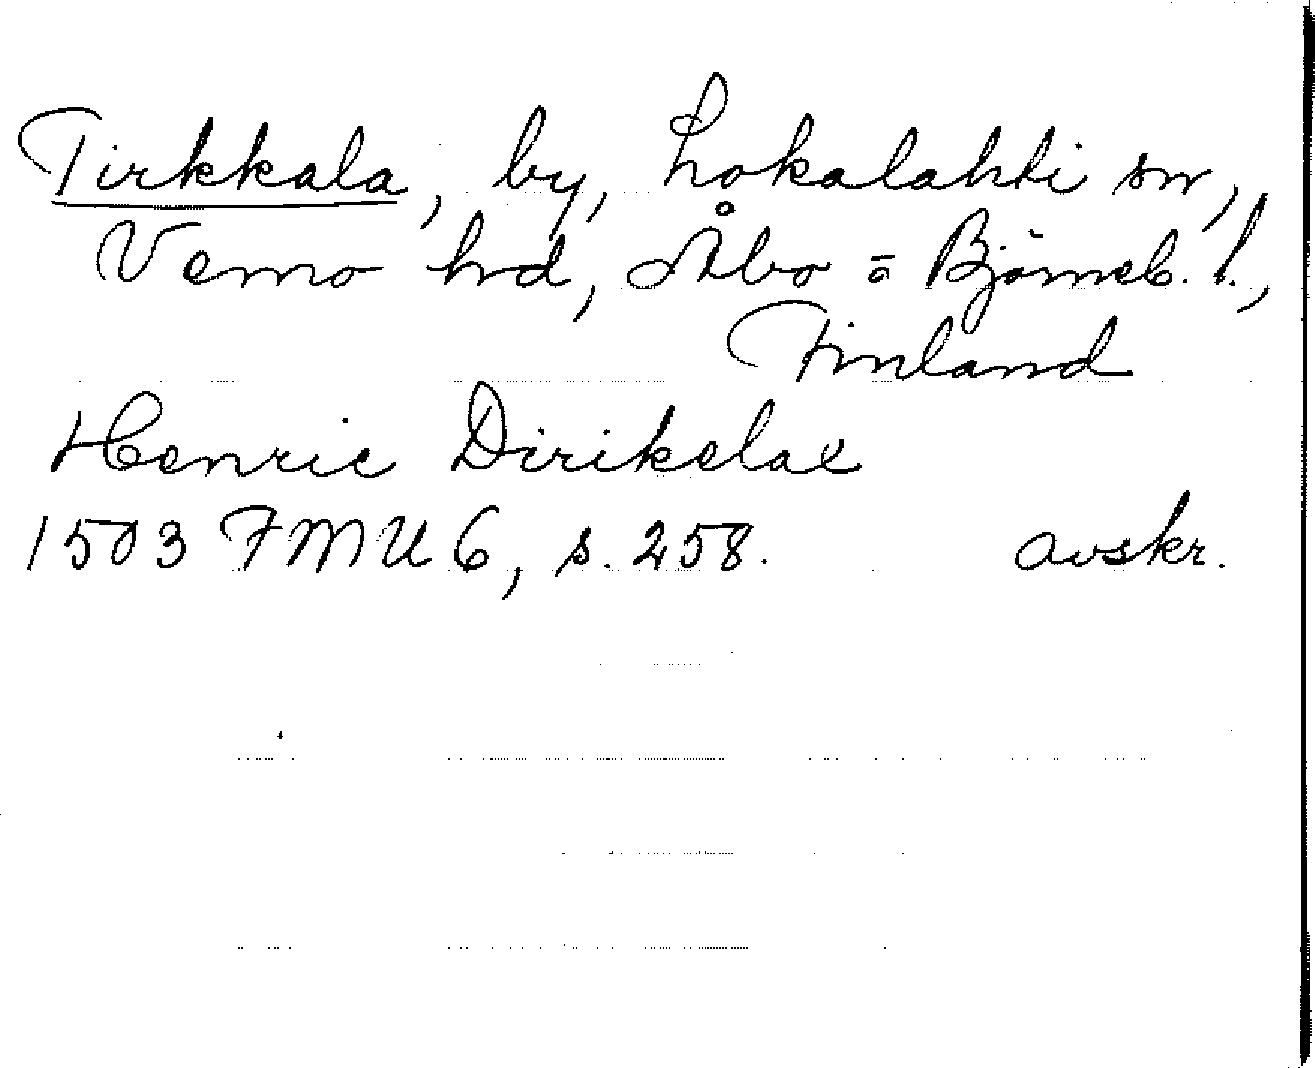 Tirkkala, by, Lokalahti sn,
Vemo hrd, Åbo o Björneb. l.,
Finland
Henric Dirikelae
1503 FMU 6, s. 258. avskr.